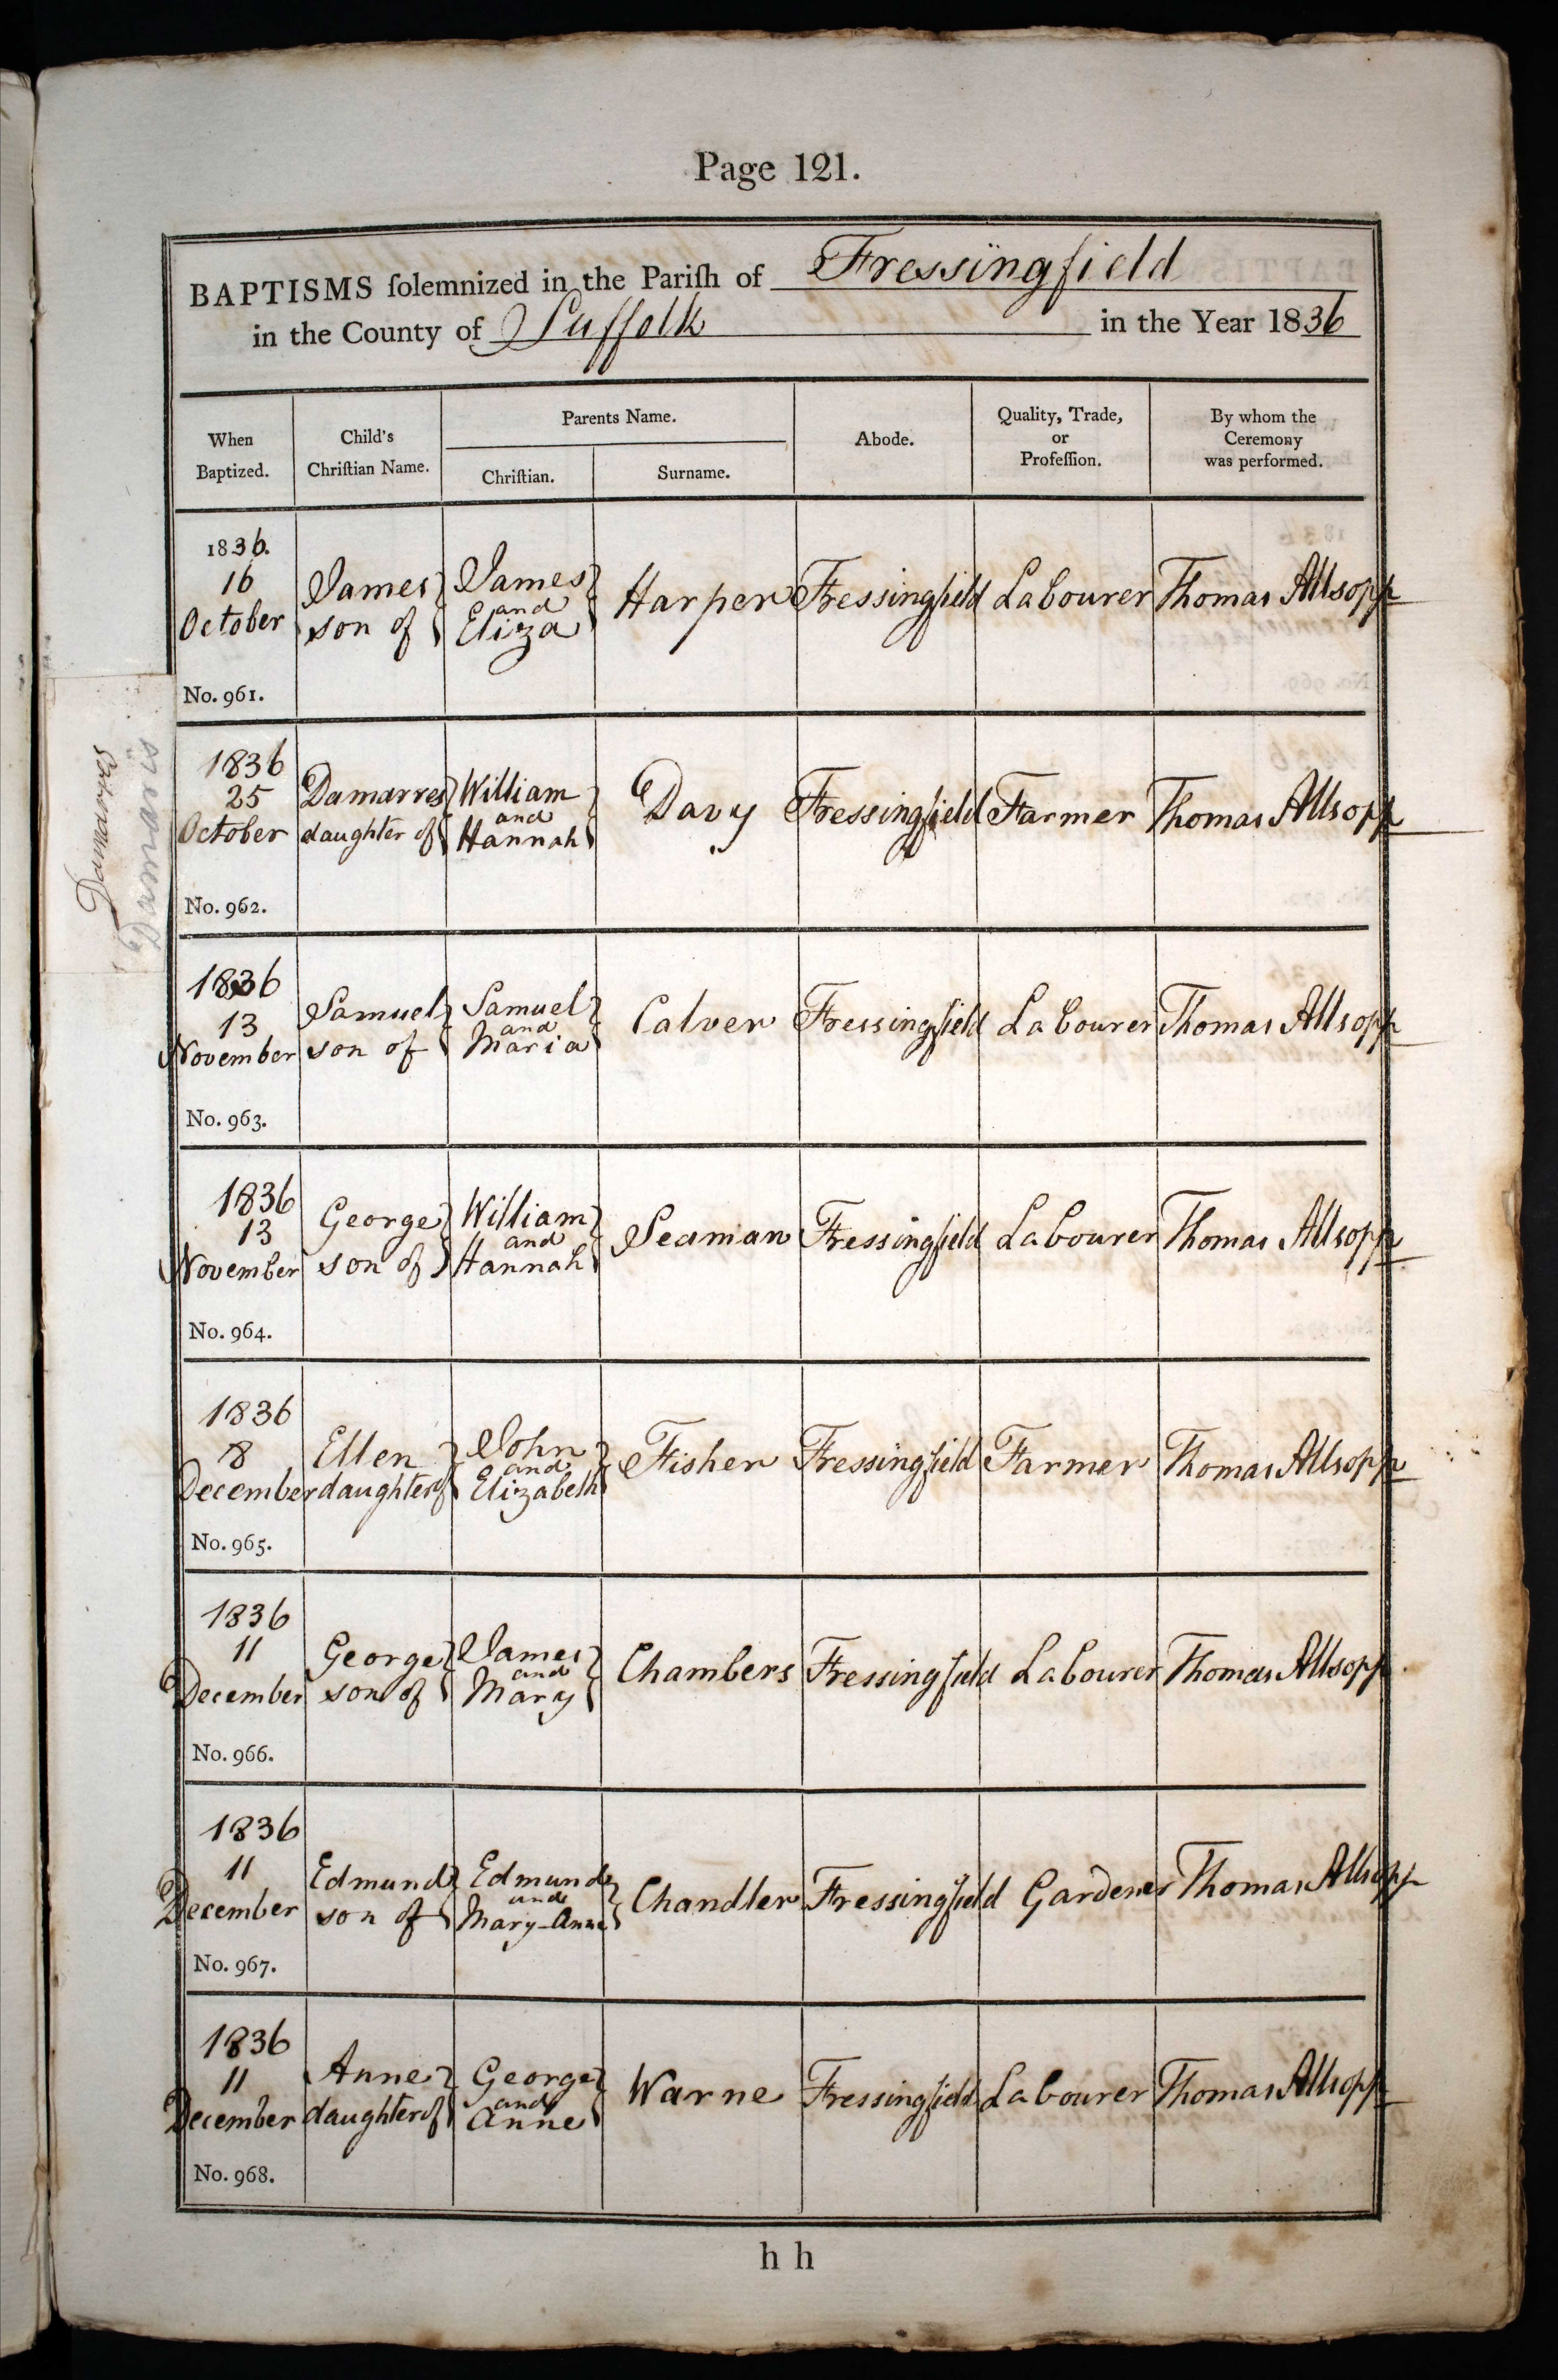 Page 121.
BAPTISMS ſolemnized in the Pariſh of Fressingfield
in the County of Suffolk in the Year 1836
When Baptized.
Child's Chriſtian Name.
Parents Name.
Chriſtian.
Surname.
Abode.
Quality, Trade, or Profeſſion.
By whom the Ceremony was performed.
1836.
16
October
No. 961.
James
son of
James
and
Eliza
Harper
Fressingfield
Labourer
Thomas Allsopp
1836
25
October
No. 962.
Damarres
daughter of
William
and
Hannah
Davy
Fressingfield
Farmer
Thomas Allsopp
1836
13
November
No. 963.
Samuel
son of
Samuel
and
Maria
Calver
Fressingfield
Labourer
Thomas Allsopp
1836
13
November
No. 964.
George
son of
William
and
Hannah
Seaman
Fressingfield
Labourer
Thomas Allsopp
1836
8
December
No. 965.
Ellen
daughter of
John
and
Elizabeth
Fisher
Fressingfield
Farmer
Thomas Allsopp
1836
11
December
No. 966.
George
son of
James
and
Mary
Chambers
Fressingfield
Labourer
Thomas Allsopp
1836
11
December
No. 967.
Edmund
son of
Edmund
and
Mary-Anne
Chandler
Fressingfield
Gardener
Thomas Allsopp
1836
11
December
No. 968.
Anne
daughter of
George
and
Anne
Warne
Fressingfield
Labourer
Thomas Allsopp
h h